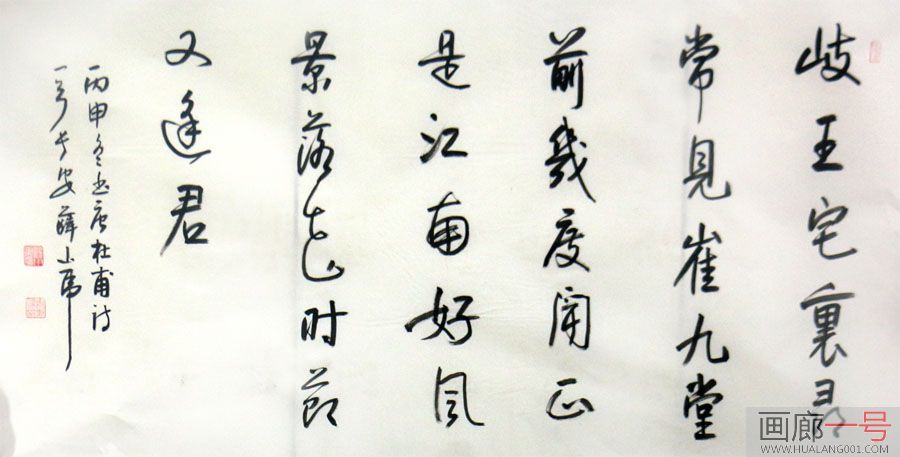 岐王宅裏尋
常見崔九堂
前幾度闻正
是江南好风
景落花时節
又逢君
丙申冬书唐杜甫诗
一首长安薛小虎
画廊一号
WWW.HUALANG001.COM